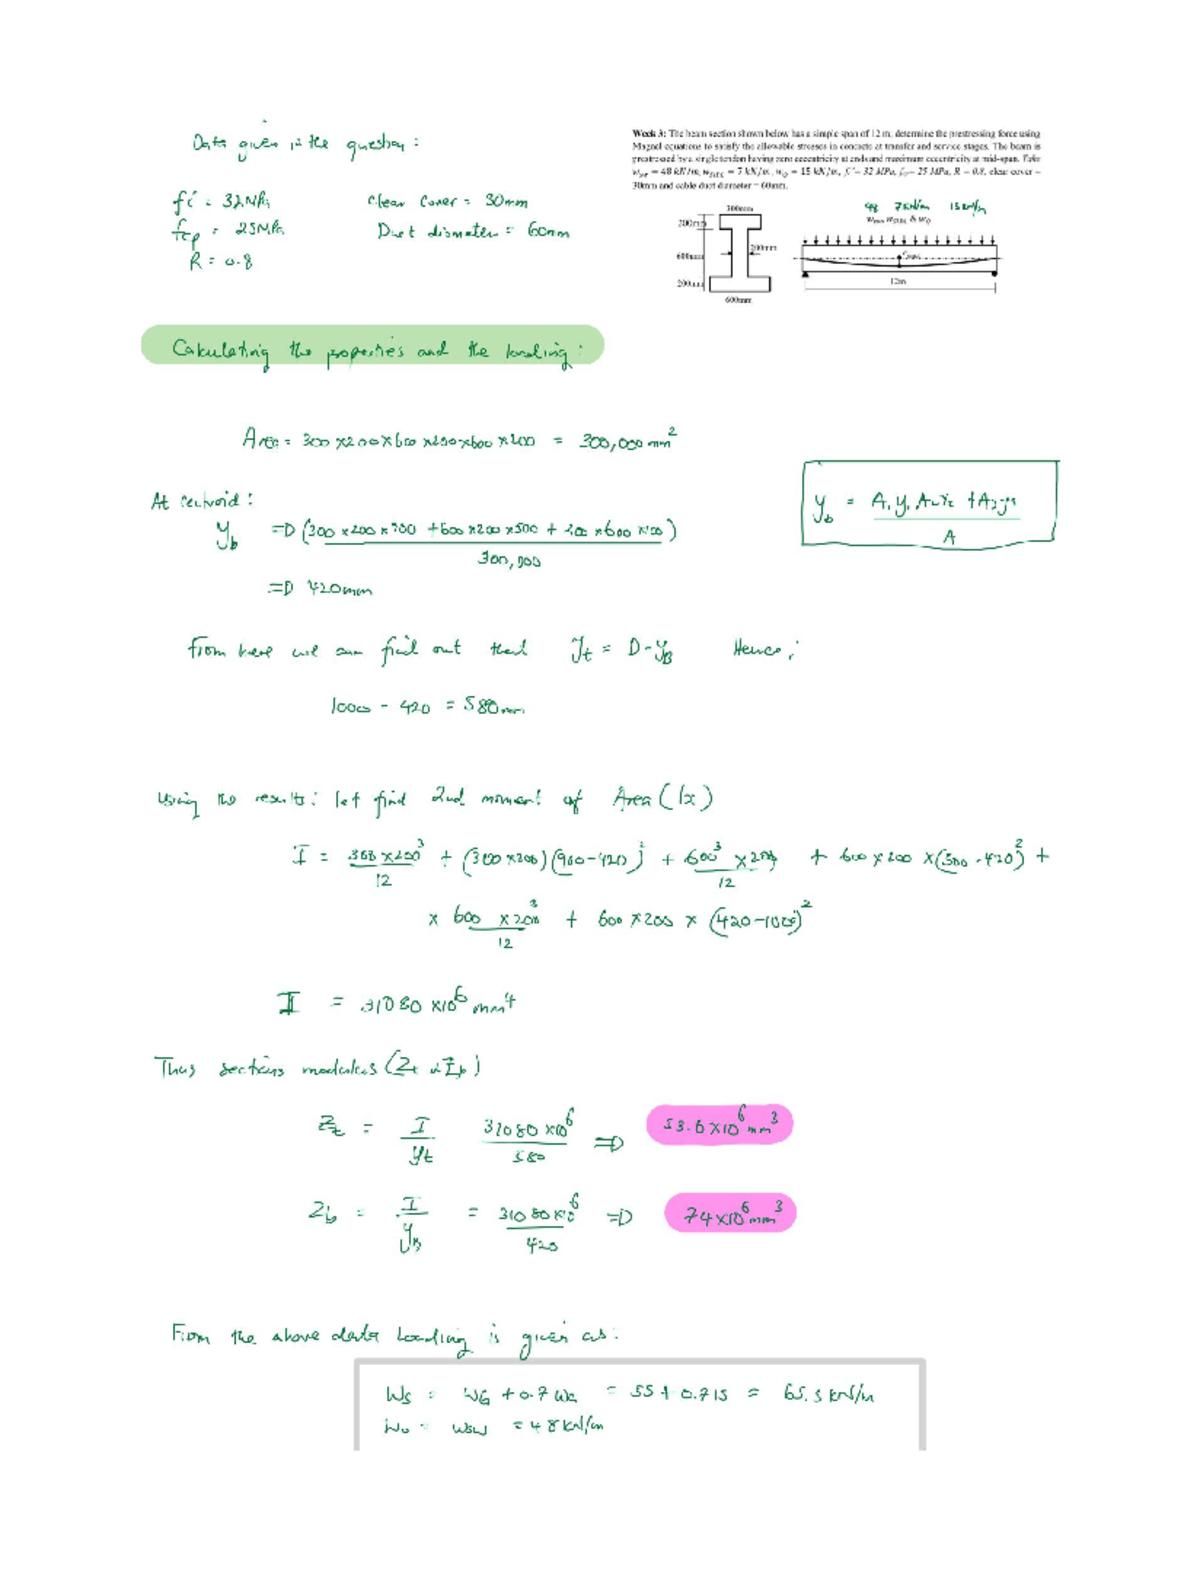 Data given in the question :
f'c = 32MPa    Clear Cover = 30mm
fcp = 25MPa    Duct diameter = 60mm
R = 0.8
Week 3: The beam section shown below has a simple span of 12 m, determine the prestressing force using
Magnel equations to satisfy the allowable stresses in concrete at transfer and service stages. The beam is
prestressed by a single tendon having zero eccentricity at ends and maximum eccentricity at mid-span. Take
= 48 kN/m, = 7 kN/m, wQ = 15 kN/m, f'c = 32 MPa, = 25 MPa, R = 0.8, clear cover =
30mm and cable duct diameter = 60mm.
300mm
200mm
600mm
200mm
200mm
600mm
48 7kN/m 15kN/m
& wQ
12m
Calculating the properties and the loading :
Area = 300 x200x600 x200x600 x200 = 300,000 mm²
At centroid :
yb => (300 x200 x900 +600 x200 x500 + 200 x600 x100)
300,000
yb = A₁y₁ A₂Y₂ + A₃y₃
A
=> 420mm
From here we can find out that yt = D-yB Hence ;
1000 - 420 = 580mm
Using the results : let find 2nd moment of Area (Ix)
I = 300 x200³ + (300 x200) (900-420)² + 600³ x200 + 600 x 200 x (500 - 420)² +
12 12
x 600 x 200³ + 600 x 200 x (420-100)²
12
I = 31080 x10⁶ mm⁴
Thus sections modulus (Zt & Zb)
Zt = I 31080 x10⁶ => 53.6 x10⁶ mm³
yt 580
Zb = I = 31080 x10⁶ => 74x10⁶ mm³
yB 420
From the above data loading is given as :
Ws = WG + 0.7 WQ = 55 + 0.715 = 65.5 kN/m
Wo = wsw = 48 kN/m